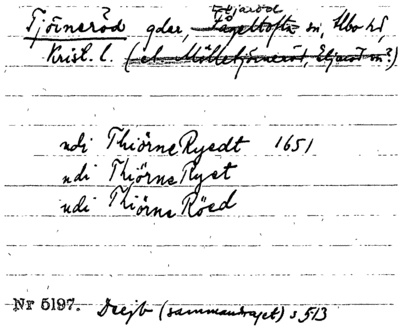 Eljaröd
Tjörneröd gder, Tågeltofta sn, Albo hd,
Krist. l. (el Mölletjörneröd, Eljaröd sn?)
udi Thiörne Ryedt 1651
udi Thiörne Ryet
udi Thiörne Röed
Nr 5197. Dejb (sammandraget) s 513